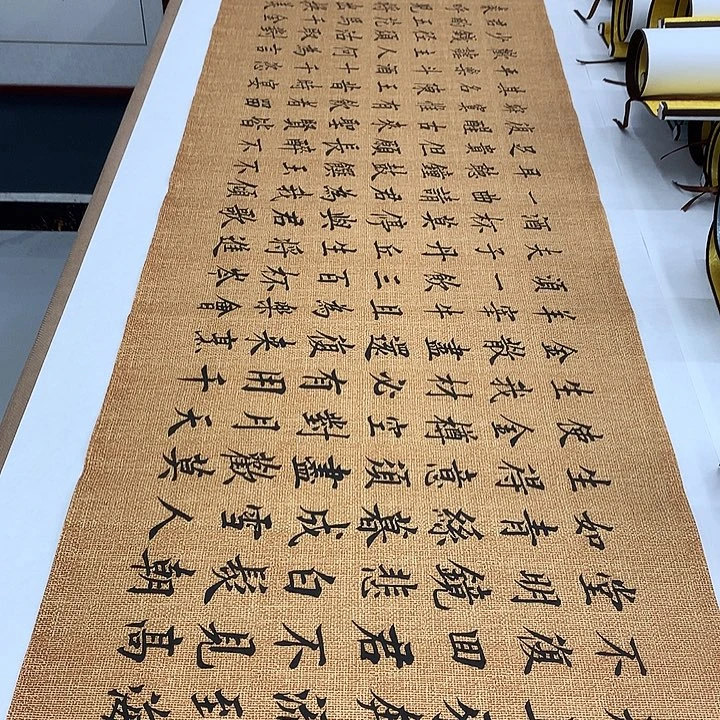 不復回君不見高
堂明鏡悲白髮朝
如青絲暮成雪人
生得意須盡歡莫
使金樽空對月天
生我材必有用千
金散盡還復來烹
羊宰牛且為樂會
須一飲三百杯岑
夫子丹丘生將進
酒杯莫停與君歌
一曲請君為我傾
耳聽鐘鼓饌玉不
足貴但願長醉不
復醒古來聖賢皆
寂寞惟有飲者留
其名陳王昔時宴
平樂斗酒十千恣
歡謔主人何為言
少錢徑須沽取對